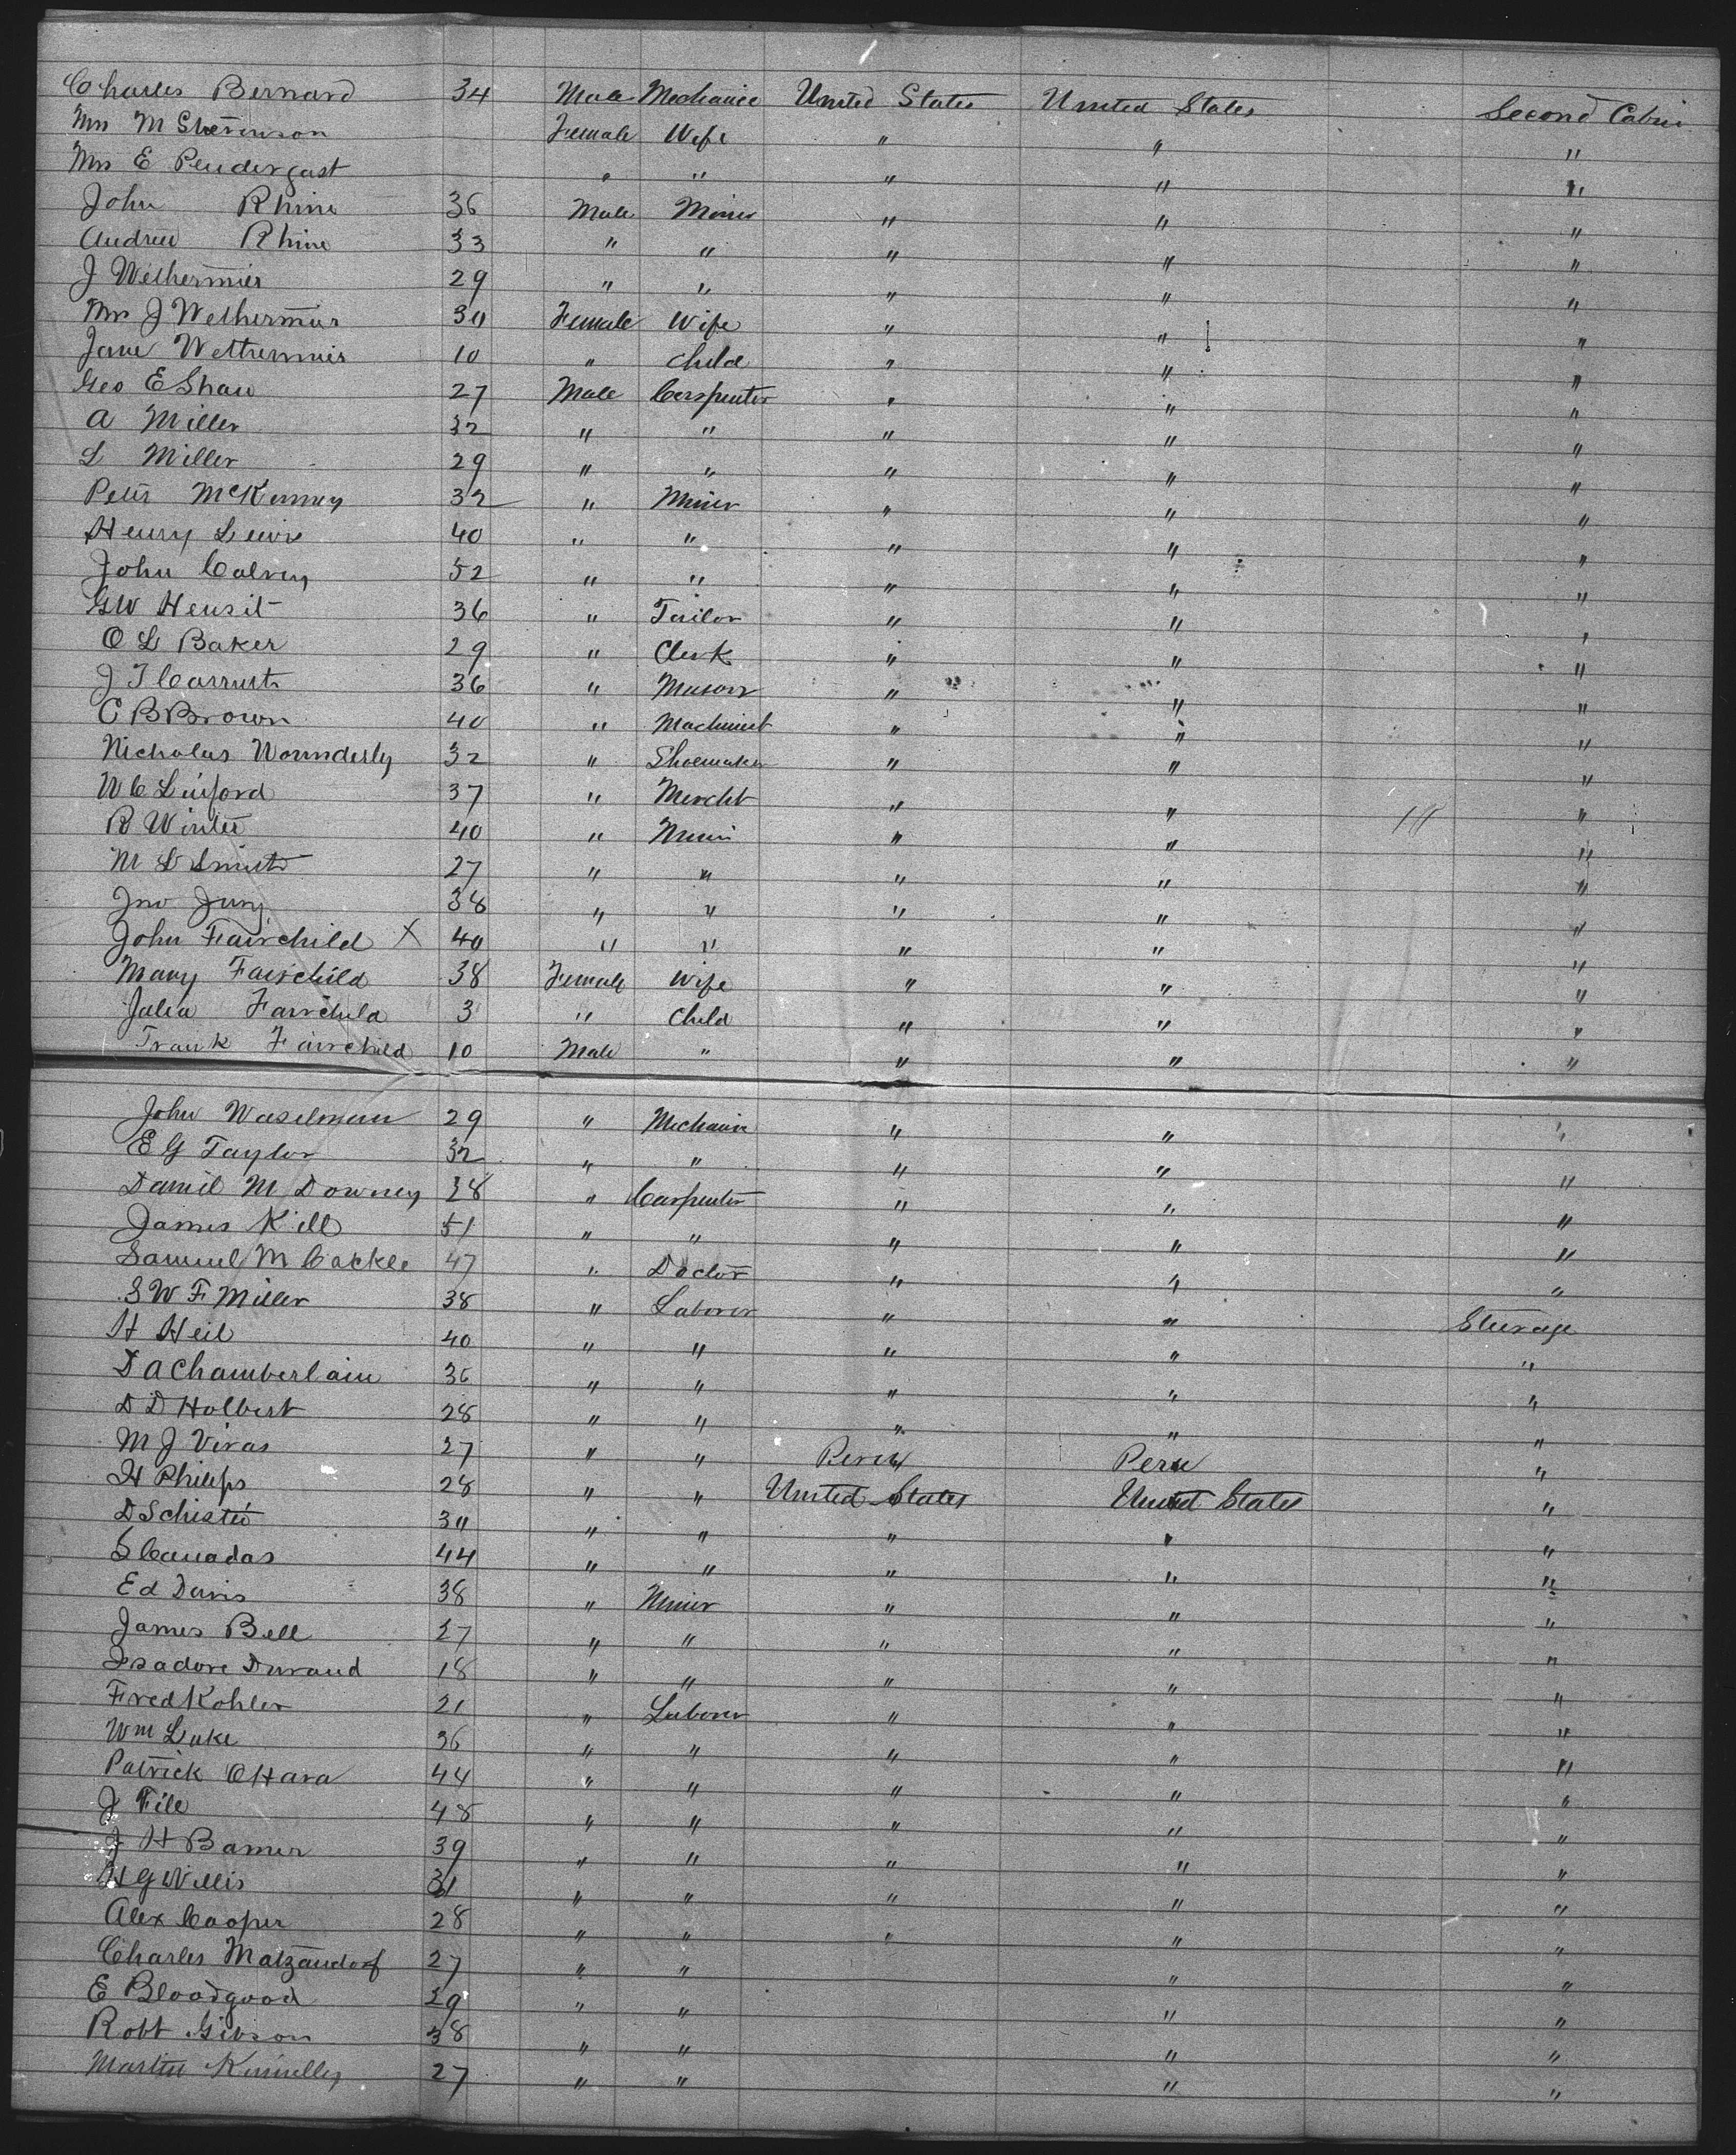 Charles Bernard 34 Male Mechanic United States United States Second Cabin
Mrs M Stevenson Female Wife " " "
Mrs E Pendergast " " " " "
John Rhine 36 Male Miner " " "
Andrew Rhine 33 " " " " "
J Wethermier 29 " " " " "
Mrs J Wethermier 30 Female Wife " " "
Jane Wethermier 10 " Child " " "
Geo E Shaw 27 Male Carpenter " " "
A Miller 32 " " " " "
L Miller 29 " " " " "
Peter McKenney 32 " Miner " " "
Henry Lewis 40 " " " " "
John Calvey 52 " " " " "
GW Hensit 36 " Tailor " " "
O L Baker 29 " Clerk " " "
J T Carruth 36 " Mason " " "
C B Brown 40 " Machinist " " "
Nicholas Wounderly 32 " Shoemaker " " "
W C Linford 37 " Mercht " " "
R Winter 40 " Miner " " "
M L Smith 27 " " " " "
Jno Jung 38 " " " " "
John Fairchild X 40 " " " " "
Mary Fairchild 38 Female Wife " " "
Julia Fairchild 3 " Child " " "
Frank Fairchild 10 Male " " " "
John Waselman 29 " Mechanic " " "
E G Taylor 32 " " " " "
Daniel M Downey 38 " Carpenter " " "
James Kill 51 " " " " "
Samuel M Cackle 47 " Doctor " " "
S W F Miller 38 " Laborer " " Steerage
H Heil 40 " " " " "
D A Chamberlain 36 " " " " "
D D Holbert 28 " " " " "
M J Vivas 27 " " Peru Peru "
H Philips 28 " " United States United States "
D Schister 30 " " " " "
S Canadas 44 " " " " "
Ed Davis 38 " Miner " " "
James Bell 27 " " " " "
Isadore Durand 18 " " " " "
Fred Kohler 21 " Laborer " " "
Wm Luke 36 " " " " "
Patrick OHara 44 " " " " "
J File 48 " " " " "
J H Bamer 39 " " " " "
H G Willis 31 " " " " "
Alex Cooper 28 " " " " "
Charles Matzandorf 27 " " " "
E Bloodgood 29 " " " "
Robt Gibson 38 " " " "
Martin Kinnelley 27 " " " "